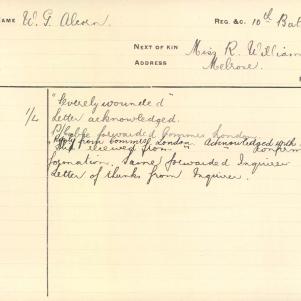 NAME W. G. Alcorn REG. &C. 10th Bat
NEXT OF KIN Miss R. William
ADDRESS Melrose.
"Severely wounded"
1/L Letter acknowledged.
forwarded Commsr London
Reply from Commsr London. Acknowledged with
received from
formation. Same forwarded Inquirer
Letter of thanks from Inquirer.